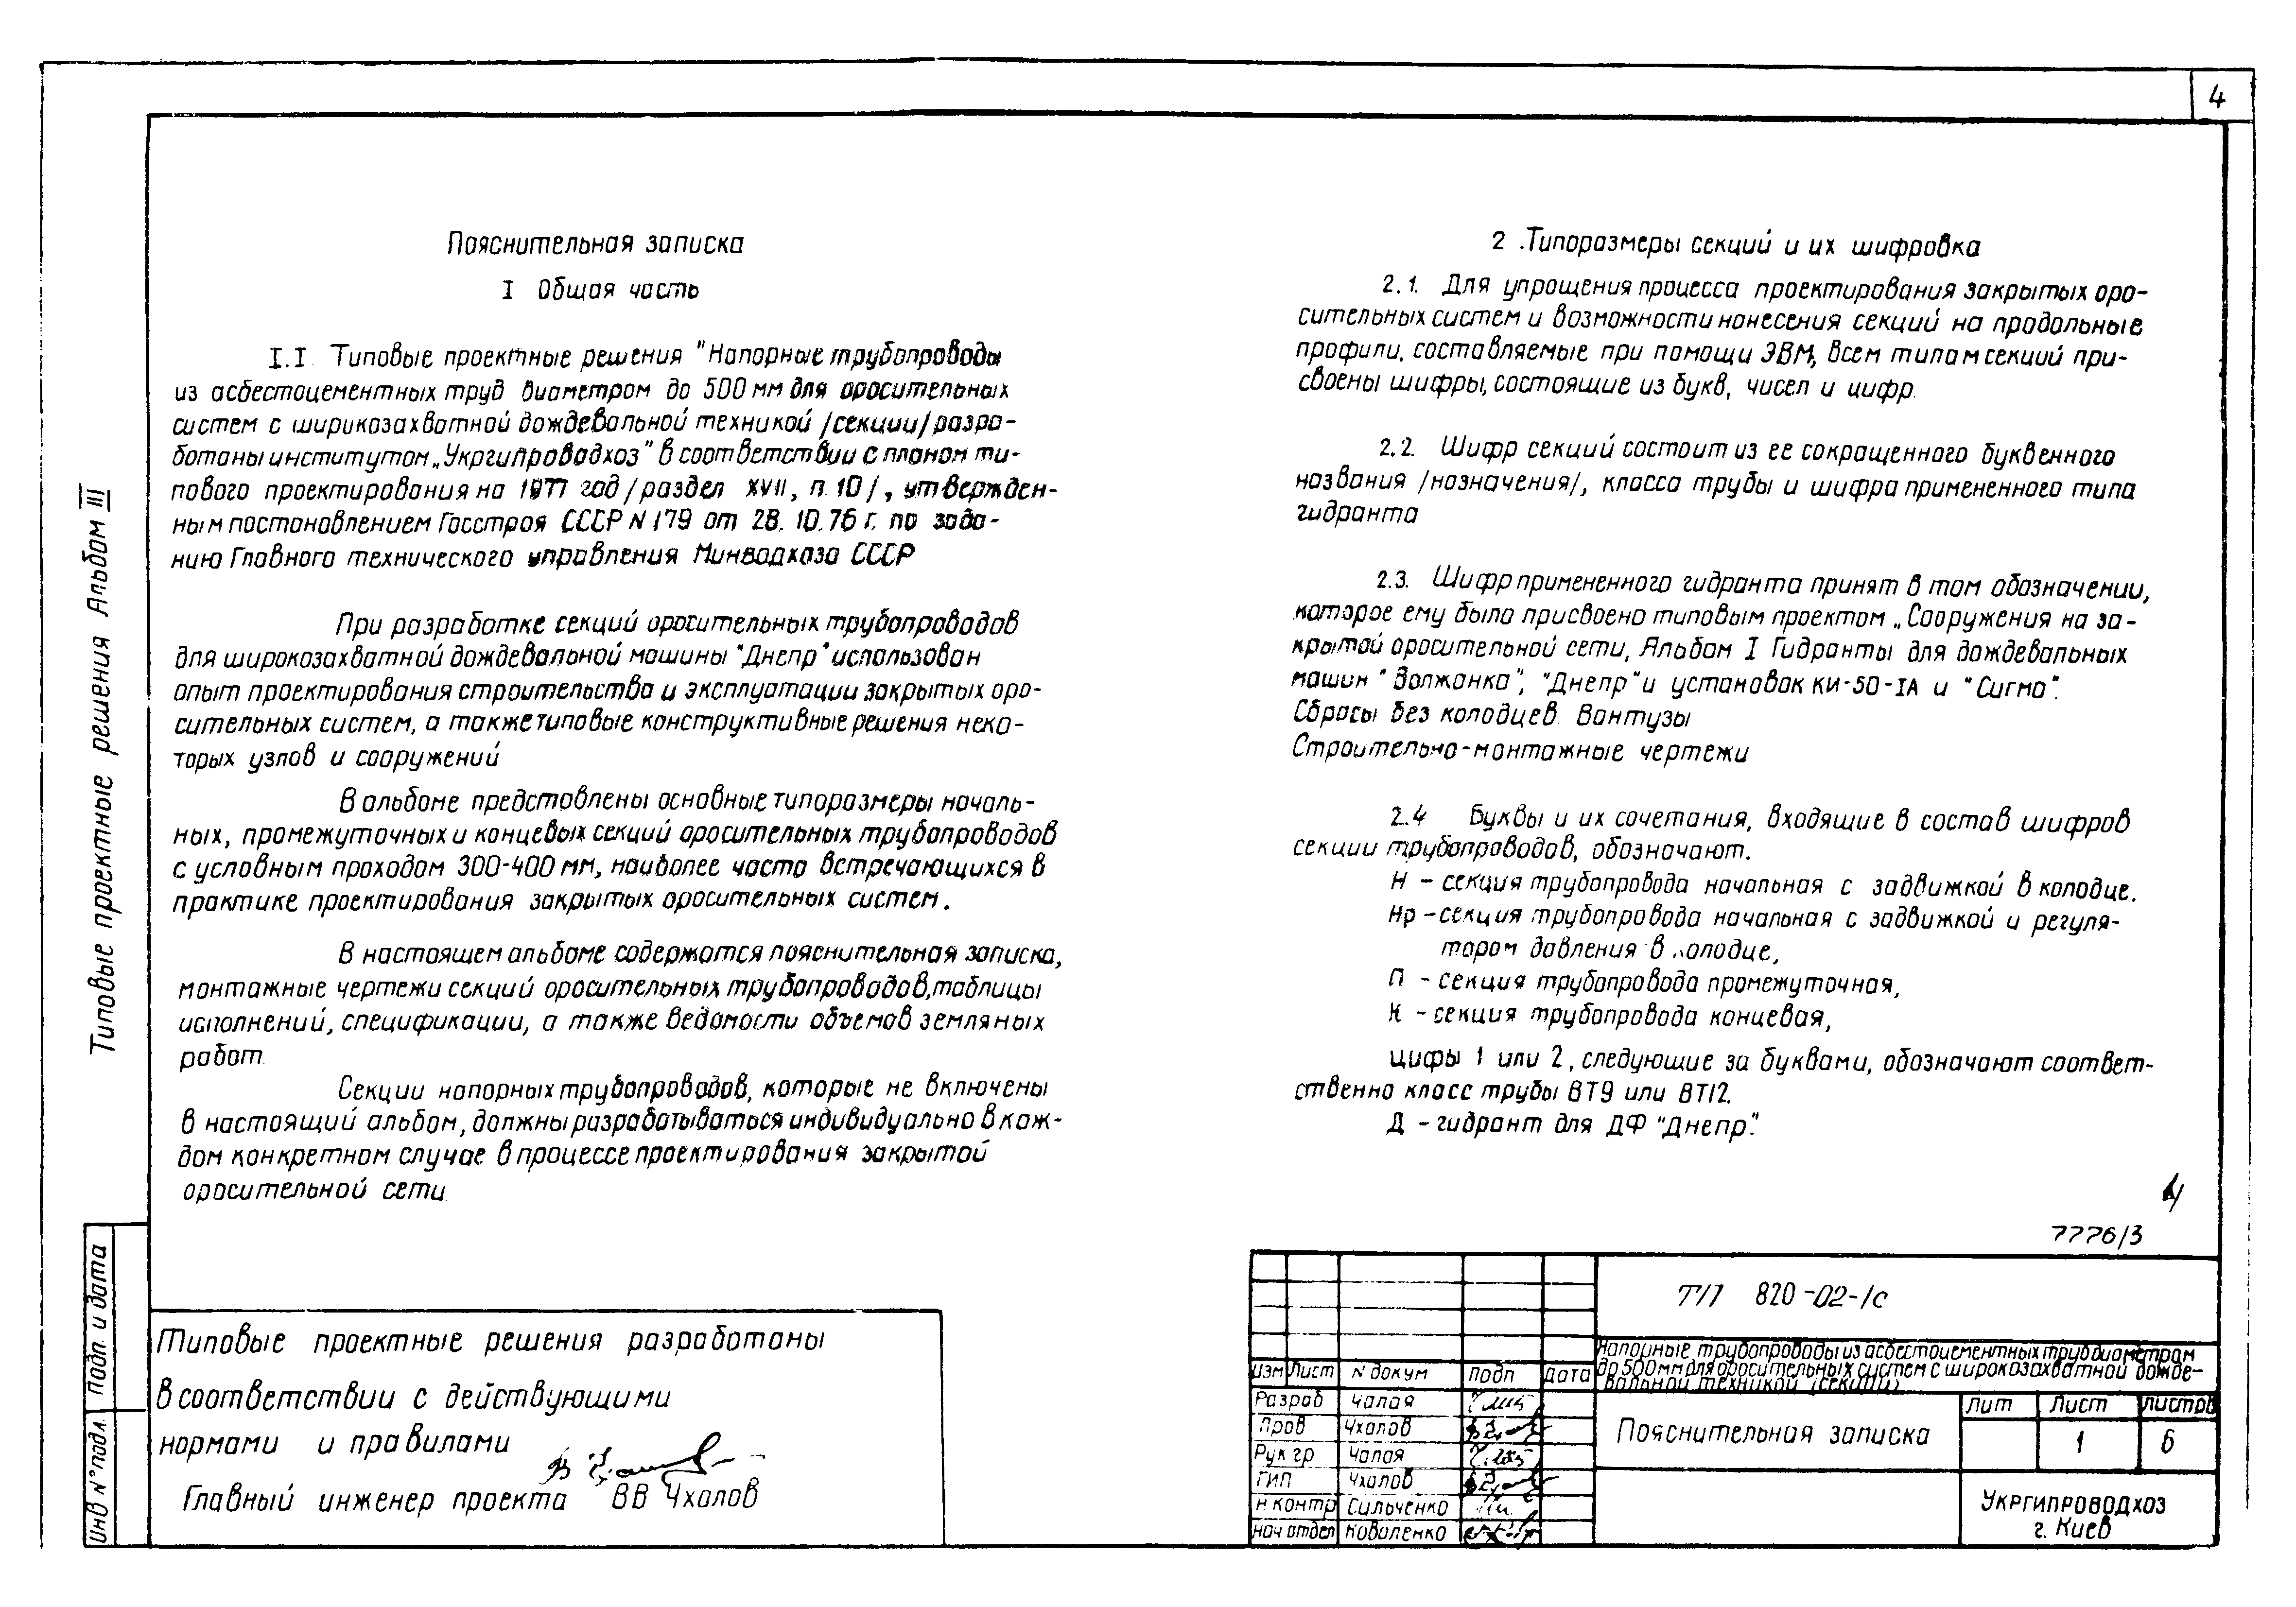 4
Типовые проектные решения Альбом III
Пояснительная записка
I Общая часть
I.I Типовые проектные решения "Напорные трубопроводы
из асбестоцементных труд диаметром до 500 мм для оросительных
систем с широкозахватной дождевальной техникой /секции/ разра-
ботаны институтом „Укргипроводхоз" в соответствии с планом ти-
пового проектирования на 1977 год /раздел XVII, п. 10/, утвержден-
ным постановлением Госстроя СССР N 179 от 28.10.76 г. по зада-
нию Главного технического управления Минводхоза СССР
При разработке секций оросительных трубопроводов
для широкозахватной дождевальной машины "Днепр" использован
опыт проектирования строительства и эксплуатации закрытых оро-
сительных систем, а также типовые конструктивные решения неко-
торых узлов и сооружений
В альбоме представлены основные типоразмеры началь-
ных, промежуточных и концевых секций оросительных трубопроводов
с условным проходом 300-400 мм, наиболее часто встречающихся в
практике проектирования закрытых оросительных систем.
В настоящем альбоме содержатся пояснительная записка,
монтажные чертежи секций оросительных трубопроводов, таблицы
исполнений, спецификации, а также ведомости объемов земляных
работ.
Секции напорных трубопроводов, которые не включены
в настоящий альбом, должны разрабатываться индивидуально в каж-
дом конкретном случае в процессе проектирования закрытой
оросительной сети.
2 .Типоразмеры секций и их шифровка
2.1. Для упрощения процесса проектирования закрытых оро-
сительных систем и возможности нанесения секций на продольные
профили, составляемые при помощи ЭВМ, всем типам секций при-
своены шифры, состоящие из букв, чисел и цифр.
2.2. Шифр секций состоит из ее сокращенного буквенного
названия /назначения/, класса трубы и шифра примененного типа
гидранта
2.3. Шифр примененного гидранта принят в том обозначении,
которое ему было присвоено типовым проектом „Сооружения на за-
крытой оросительной сети, Альбом I Гидранты для дождевальных
машин "Волжанка", "Днепр" и установок КИ-50-IА и "Сигма".
Сбросы без колодцев. Вантузы
Строительно-монтажные чертежи
2.4 Буквы и их сочетания, входящие в состав шифров
секции трубопроводов, обозначают.
Н - секция трубопровода начальная с задвижкой в колодце.
Нр - секция трубопровода начальная с задвижкой и регуля-
тором давления в колодце,
П - секция трубопровода промежуточная,
К - секция трубопровода концевая,
цифы 1 или 2, следующие за буквами, обозначают соответ-
ственно класс трубы ВТ9 или ВТ12.
Д - гидрант для ДФ "Днепр".
4
7776/3
Инв N° подл. Подп. и дата
Типовые проектные решения разработаны
в соответствии с действующими
нормами и правилами
Главный инженер проекта ВВ Чхалов
ТП 820-02-1с
Напорные трубопроводы из асбестоцементных труб диаметрам
до 500мм для оросительных систем с широкозахватной дожде-
вальной техникой (секции)
Изм Лист N докум Подп Дата
Разраб Чалая
Пров Чхалов
Рук гр Чалая
ГИП Чхалов
Н контр Сильченко
Нач отдел Коваленко
Пояснительная записка
Лит Лист Листов
1 6
Укргипроводхоз
г. Киев